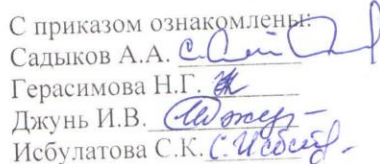 С приказом ознакомлены:
Садыков А.А.
Герасимова Н.Г.
Джунь И.В.
Исбулатова С.К.